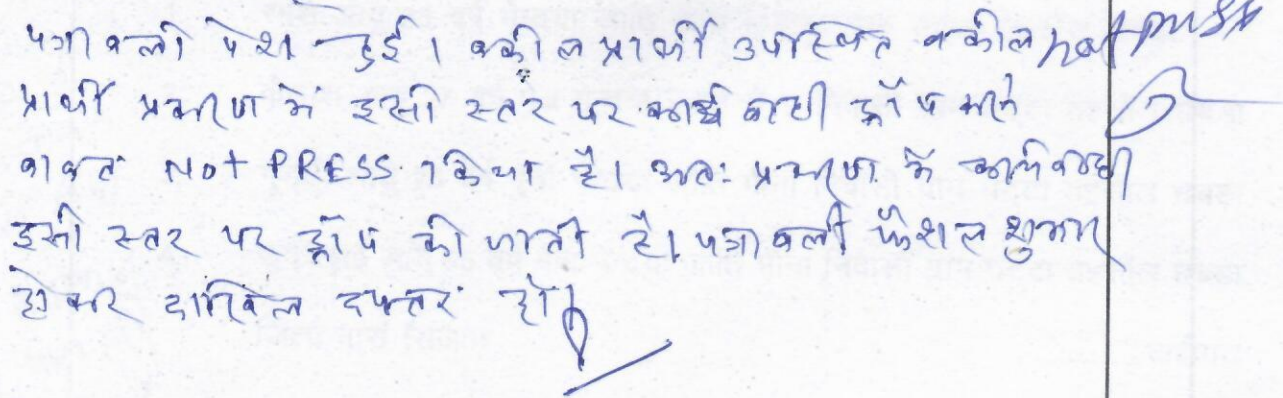 पत्रावली पेश हुई। वकील प्रार्थी उपस्थित वकील not press
प्रार्थी प्रकरण में इसी स्तर पर कार्यवाही ड्रॉप करने
बाबत Not PRESS किया है। अतः प्रकरण में कार्यवाही
इसी स्तर पर ड्रॉप की जाती है। पत्रावली फैशल शुमार
होकर दाखिल दफ्तर हो।